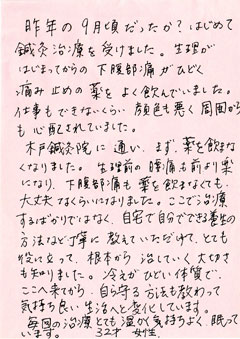 昨年の9月頃だったか?はじめて
鍼灸治療を受けました。生理が
はじまってからの下腹部痛がひどく
痛み止めの薬をよく飲んでいました。
仕事もできないくらい顔色も悪く周囲から
も心配されていました。
木戸鍼灸院に通い、まず、薬を飲まな
くなりました。生理前の腰痛も前より楽
になり、下腹部痛も薬を飲まなくても、
大丈夫なくらいになりました。ここで治療
するばかりではなく、自宅で自分でできる養生の
方法など丁寧に教えていただけて、とても
役に立って、根本から治していく大切さ
も知りました。冷えがひどい体質で、
ここへ来てから、自ら守る方法も教わって
気持ち良い生活へと変化しています。
毎回の治療とても温かく気持ちよく眠って
います。 32才 女性